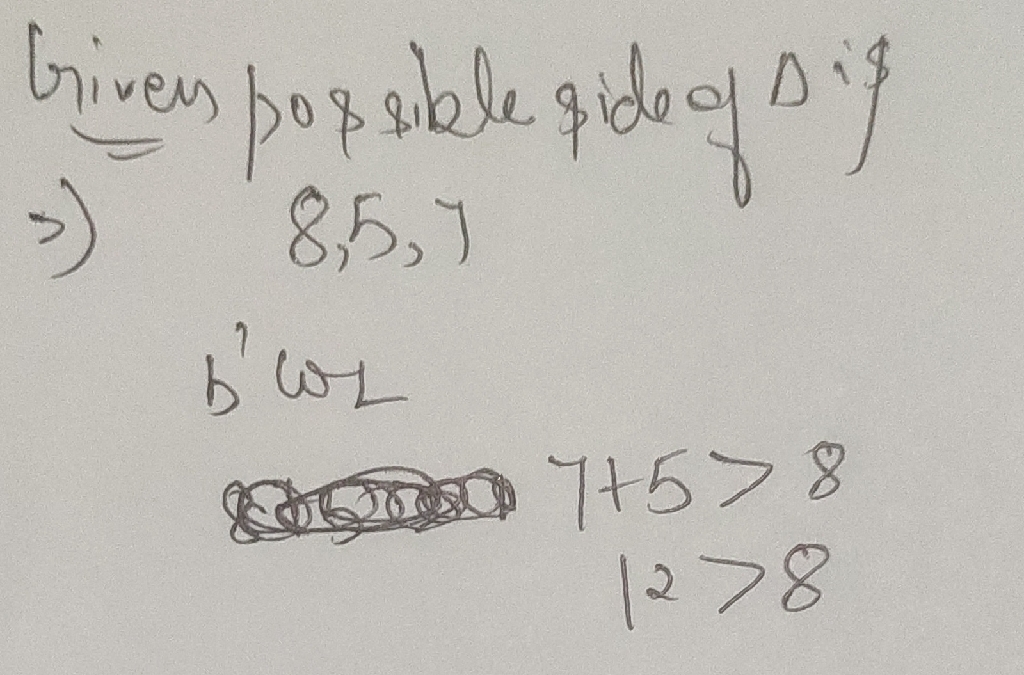 Given possible side of Δ is
⇒) 8,5,7
b'coz
7+5 > 8
12 > 8